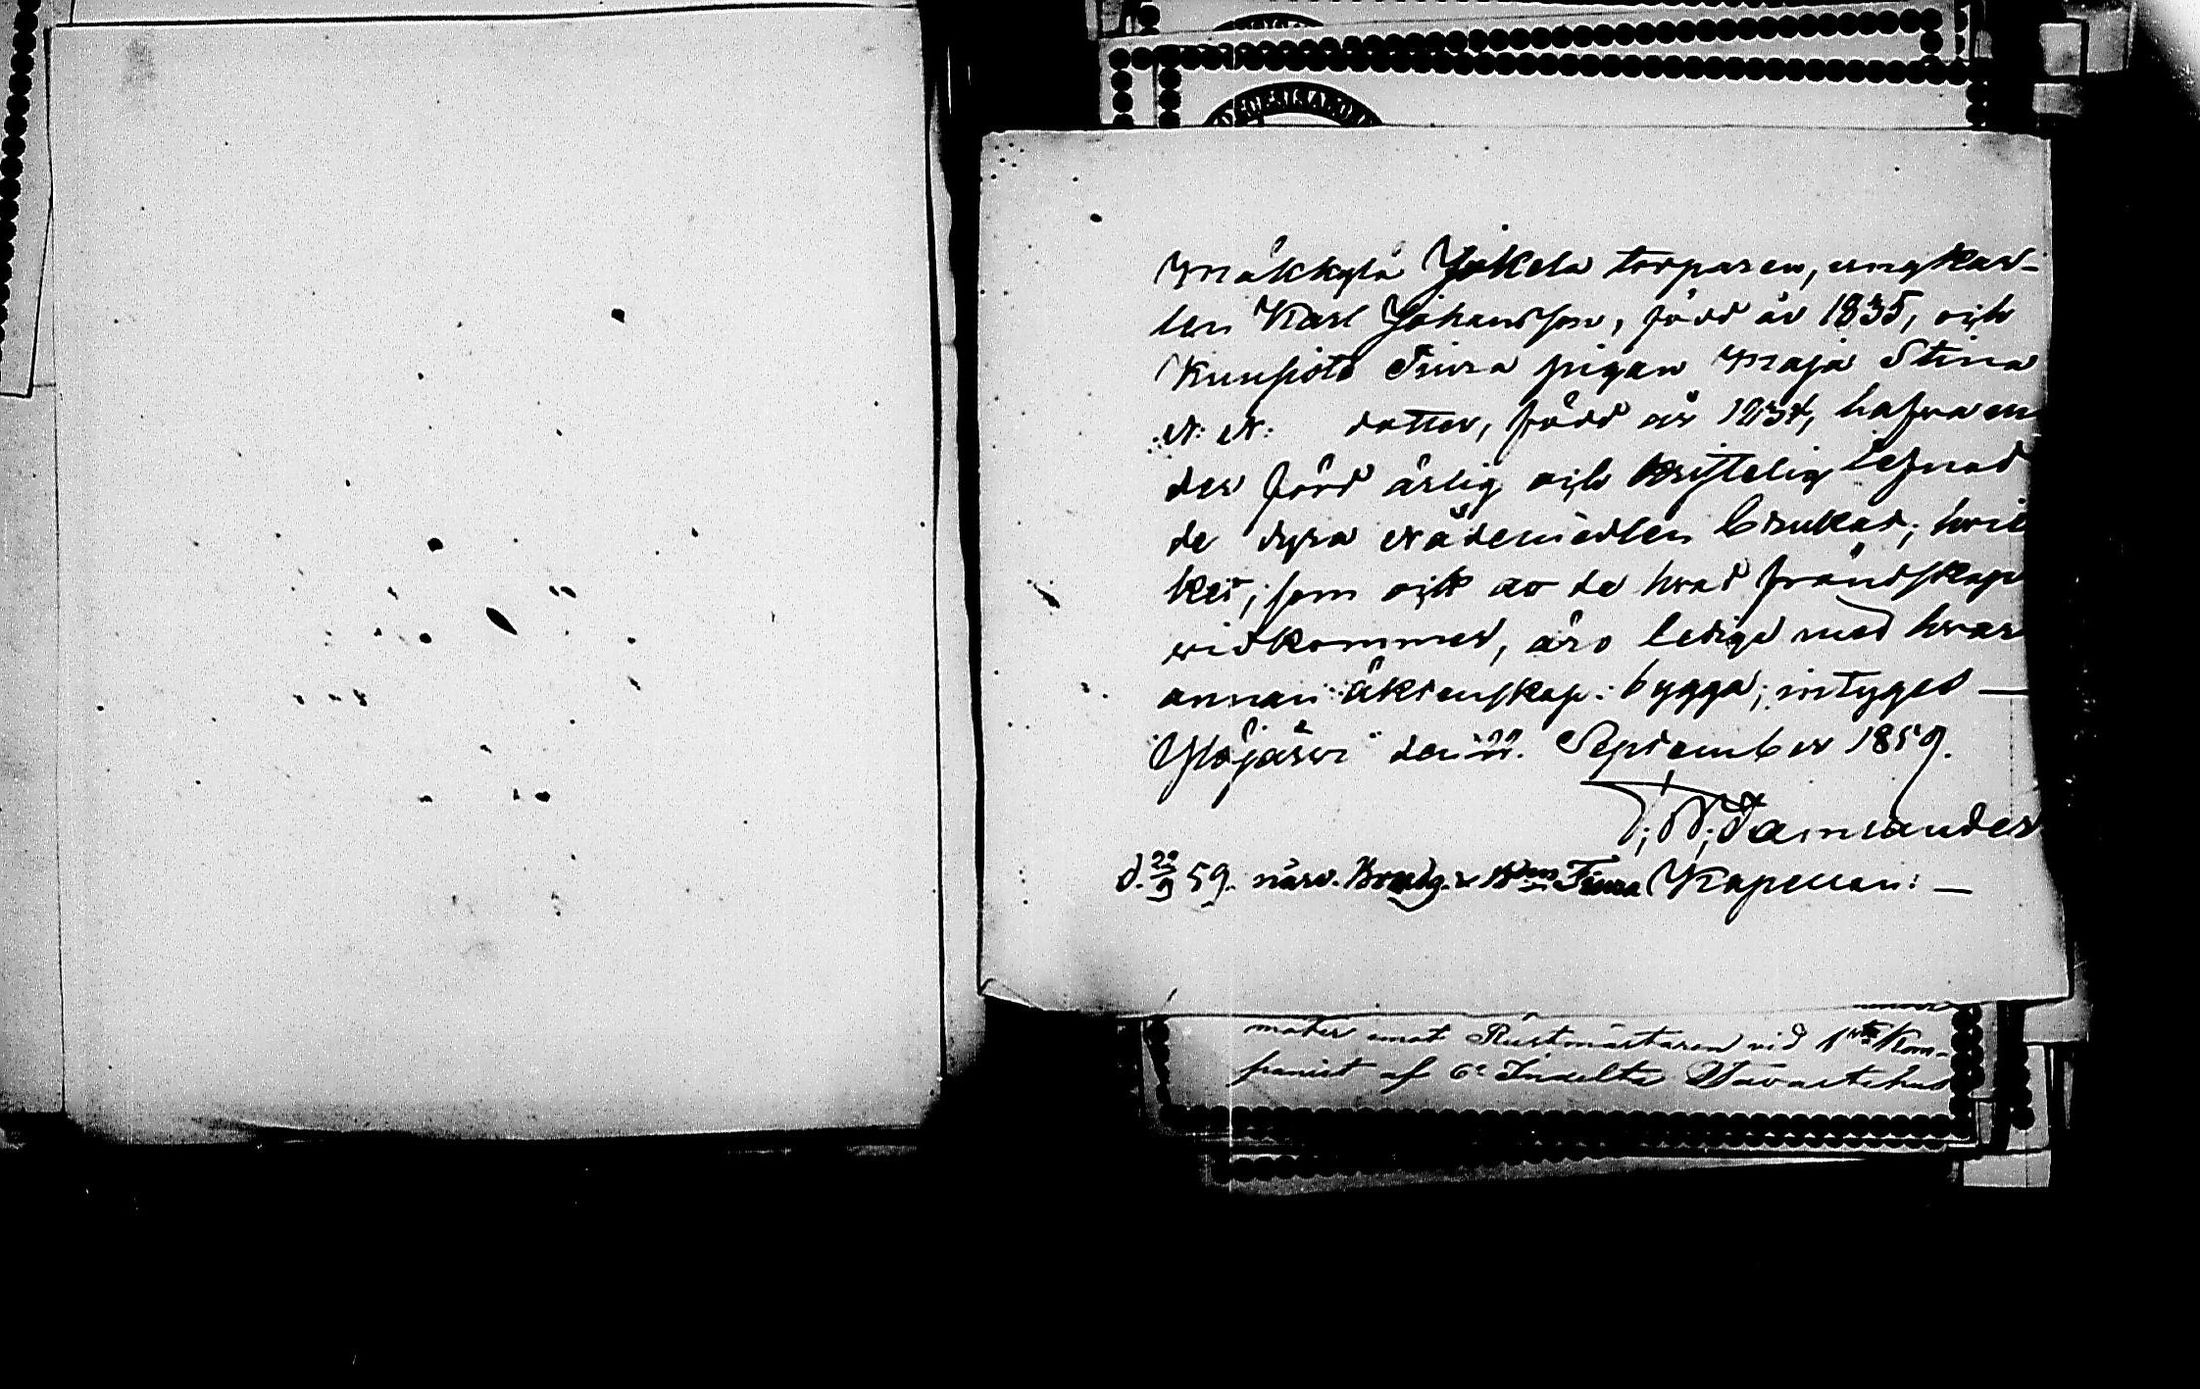 Mäkkylä Jokela torparen, ungkar-
len Karl Johansson, född år 1835, och
Kuusisto Tiura pigan Maja Stina
N: N: dotter, född år 1834, hafva en
der förd ärlig och kristelig lefnad
de dyra nådemedlen brukat, hvil
ket, som ock at de hvad frändskap
vidkommer, äro lediga med hvar
annan äktenskap bygga, intygas —
Ylöjärvi den 22. September 1859.
F. W. Tamlander
d. 22/9 59. närv. Brudg. & Tiura Kapellan: —
mater emot Rustmästaren vid 1sta Kom-
paniet af 6e Indelta Tavastehus